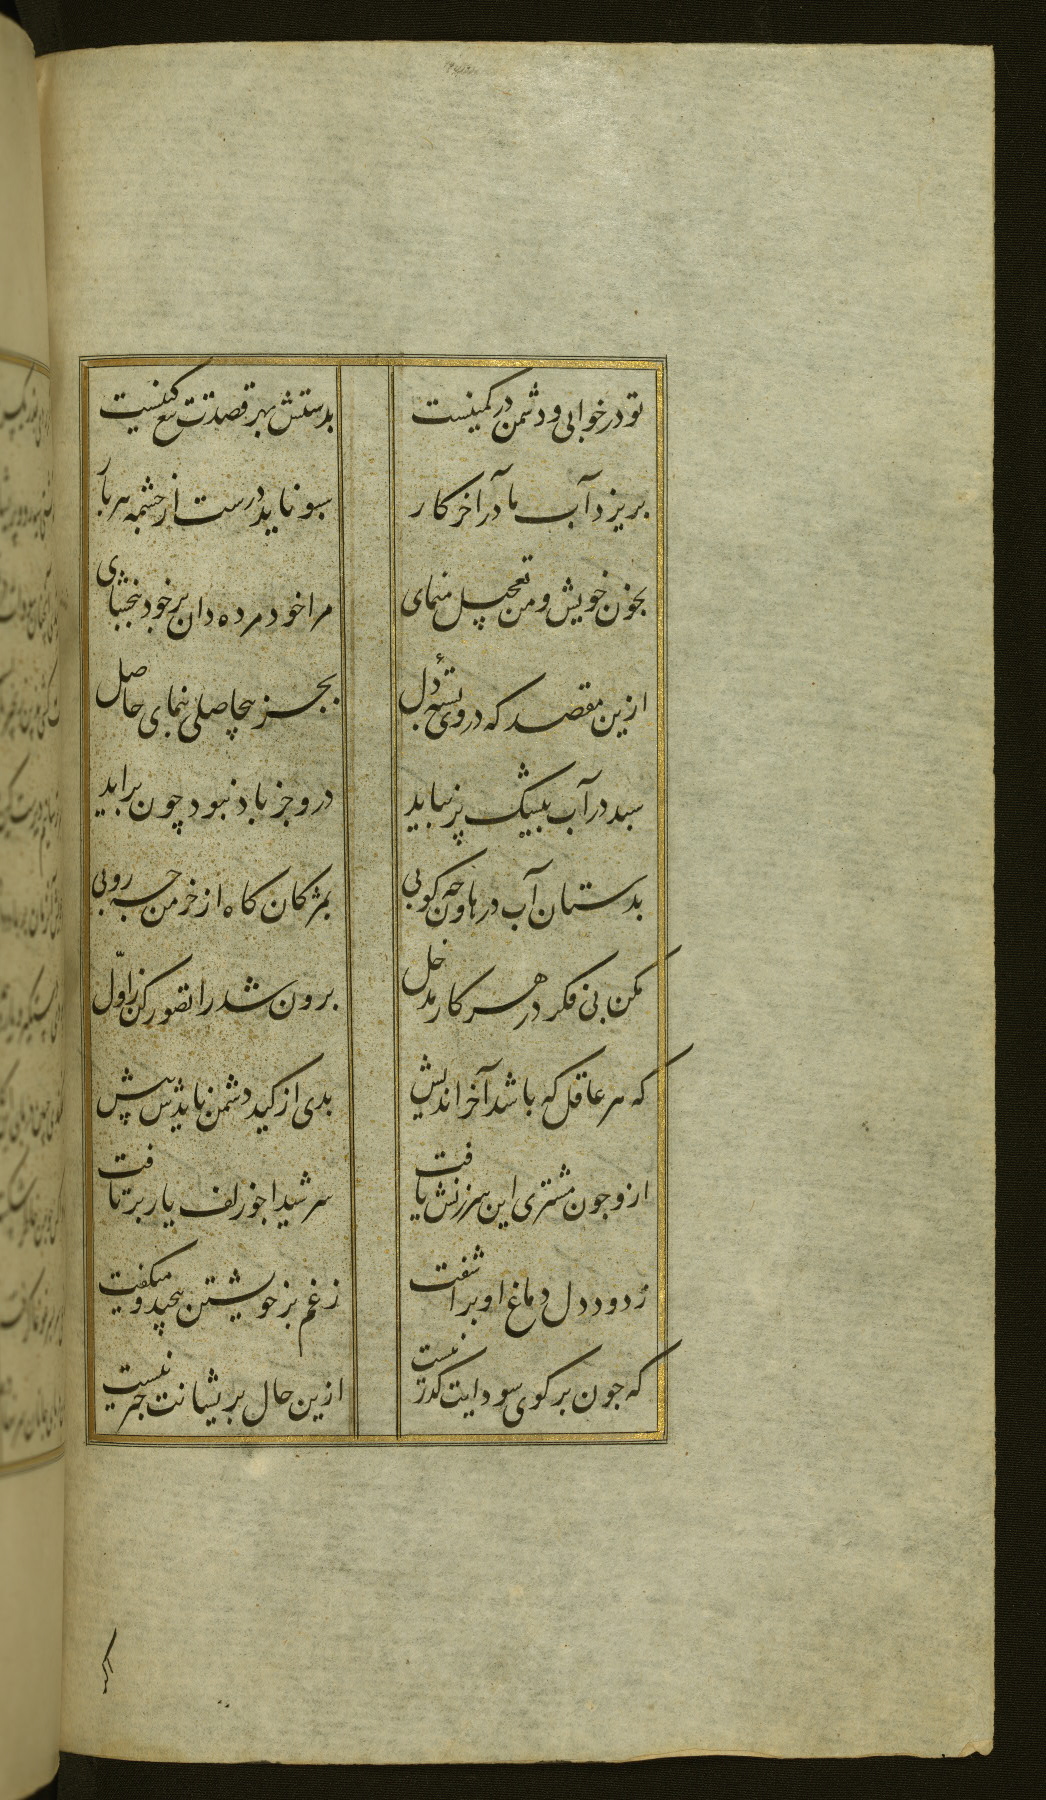 تو در خوابی و دشمن در کمینست
بدستش بهر قصدت تیغ کینست
بریزد آب ما در آخر کار
سبو ناید درست از چشمه هر بار
بخون خویش و من تعجیل منمای
مرا خود مرده دان بر خود ببخشای
ازین مقصد که در وی بستهٔ دل
بجز بیحاصلی ننمای حاصل
سبد در آب بیشک پر نیاید
درو جز باد نبود چون براید
بدستان آب در هاون چه کوبی
بمژکان کاه از خرمن چه روبی
مکن بی فکر در هر کار مدخل
برون شد را تصور کن ز اوّل
که هر عاقل که باشد آخر اندیش
بدی از کید دشمن نایدش پیش
ازو چون مشتری این سرزنش یافت
سر شیدا چو زلف یار برتافت
ز دود دل دماغ او براشفت
ز غم بر خویشتن پیچید و میکفت
که چون بر کوی سودایت کذر نیست
ازین حال پریشانت خبر نیست
اکر